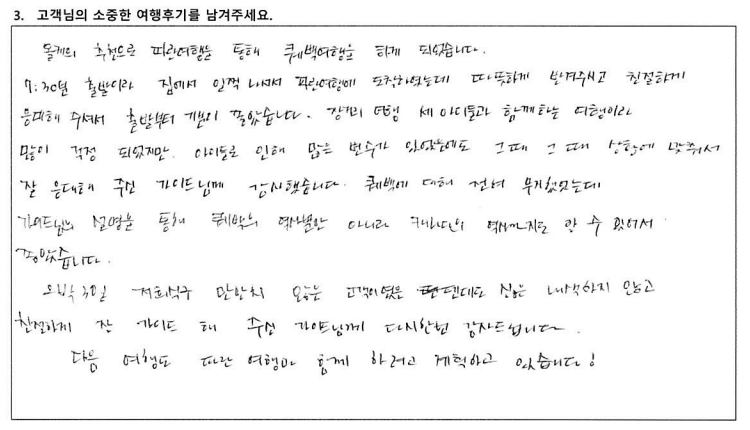 3. 고객님의 소중한 여행후기를 남겨주세요.
추천으로 파란여행을 통해 퀘백여행을 하게 되었습니다.
7:30분 출발이라 집에서 일찍 나서서 파란여행에 도착하였는데 따뜻하게 반겨주시고 친절하게
응대해 주셔서 출발부터 기분이 좋았습니다. 장거리 여행 세 아이들과 함께하는 여행이라
많이 걱정 되었지만. 아이들로 인해 많은 변수가 있었음에도 그때 그때 상황에 맞춰서
잘 응대해 주신 가이드님께 감사했습니다. 퀘백에 대해 전혀 무지했었는데
가이드님의 설명을 통해 퀘백의 역사뿐만 아니라 캐나다의 역사까지도 알 수 있어서
좋았습니다.
저희식구 만만치 않은 고객이였을 텐데도 싫은 내색하지 않고
친절하게 잘 가이드 해 주신 가이드님께 다시한번 감사드립니다.
다음 여행도 파란 여행과 함께 하려고 계획하고 있습니다!